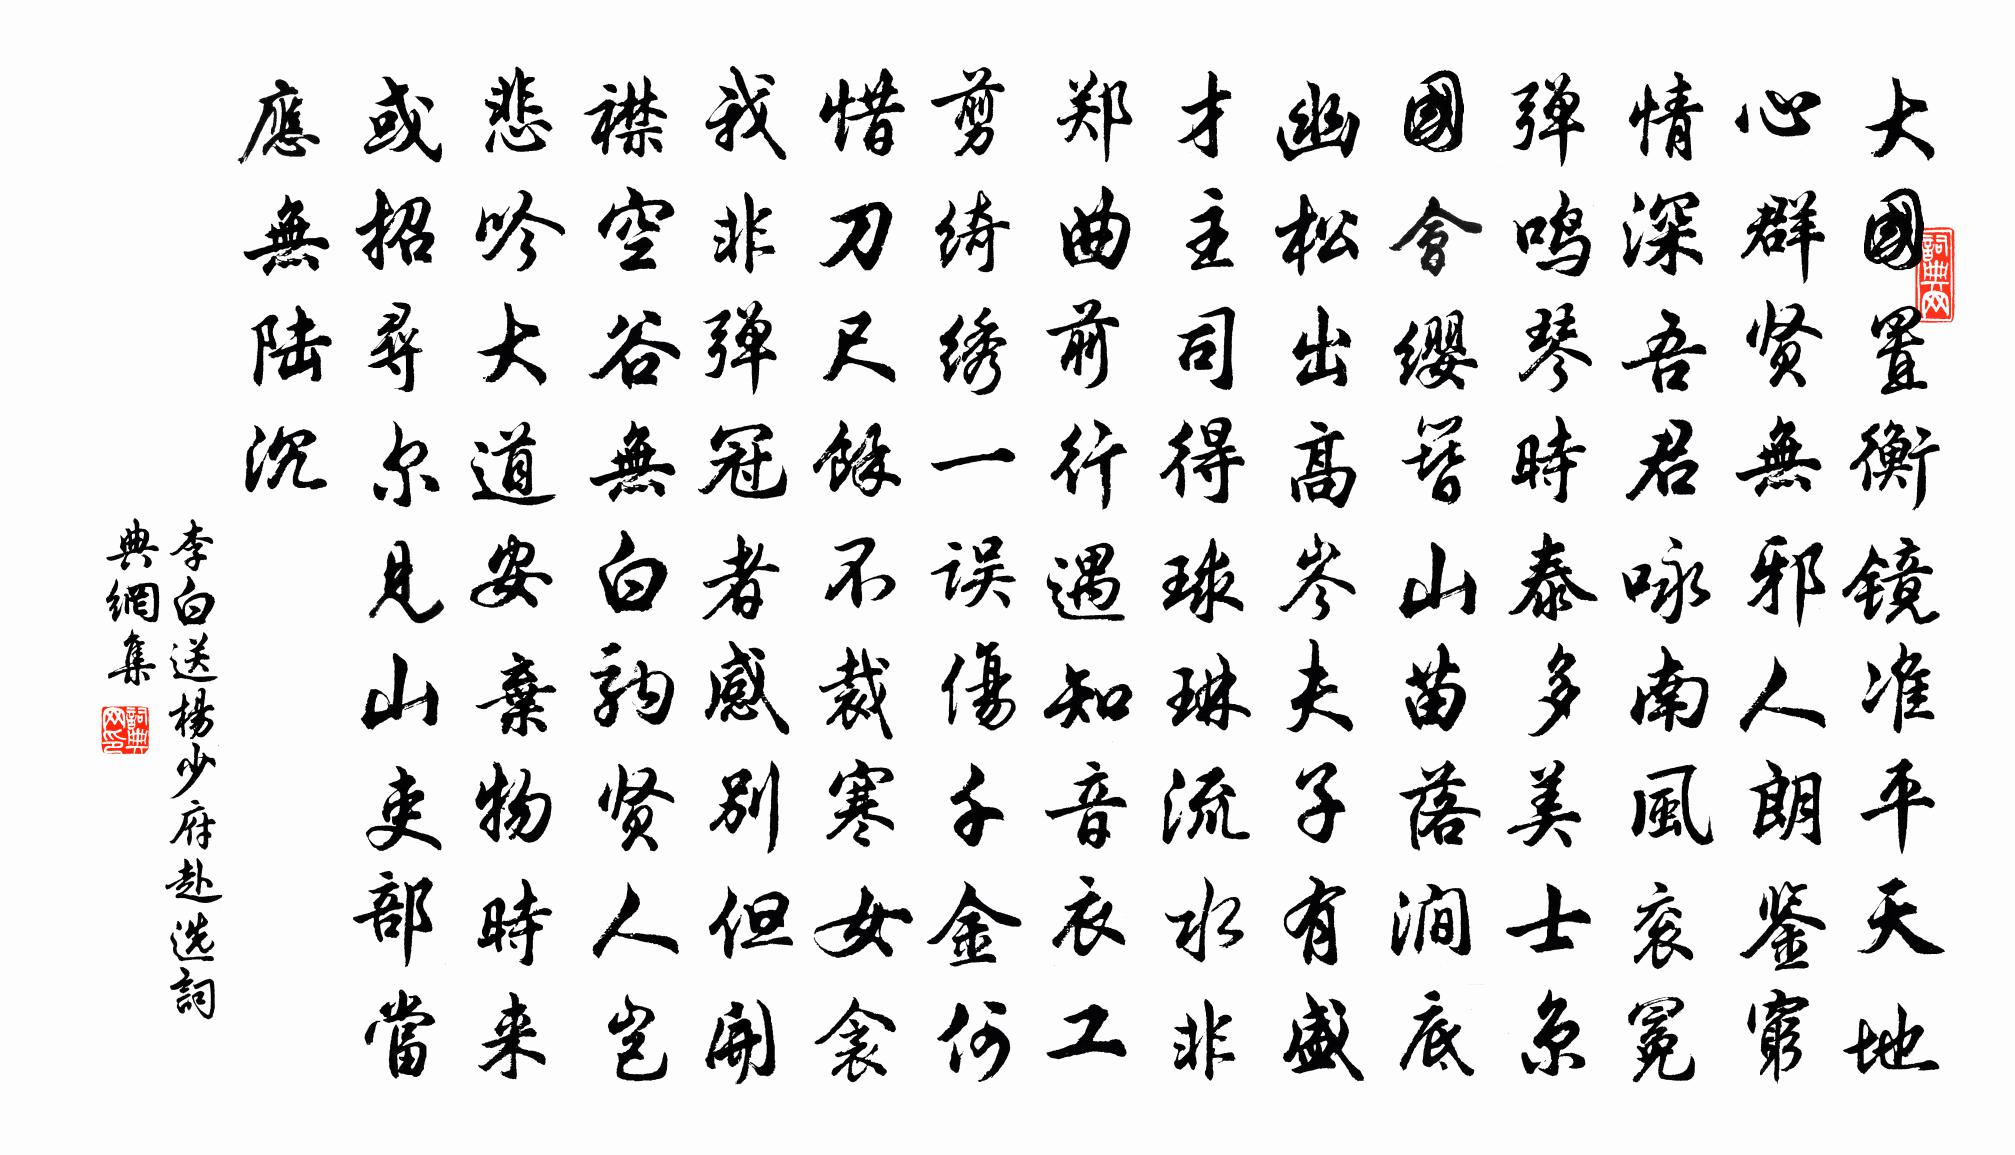 大國置衡镜准平天地
心群贤無邪人朗鉴窮
情深吾君咏南風衮冕
弹鸣琴時泰多美士京
國會缨簪山苗落澗底
幽松出高岑夫子有盛
才主司得球琳流水非
郑曲前行遇知音衣工
剪绮绣一误傷千金何
惜刀尺餘不裁寒女衾
我非弹冠者感别但開
襟空谷無白驹贤人岂
悲吟大道安棄物時来
或招尋尔見山吏部當
應無陆沉
李白送楊少府赴选詞
典網集
詞典网
詞典网印